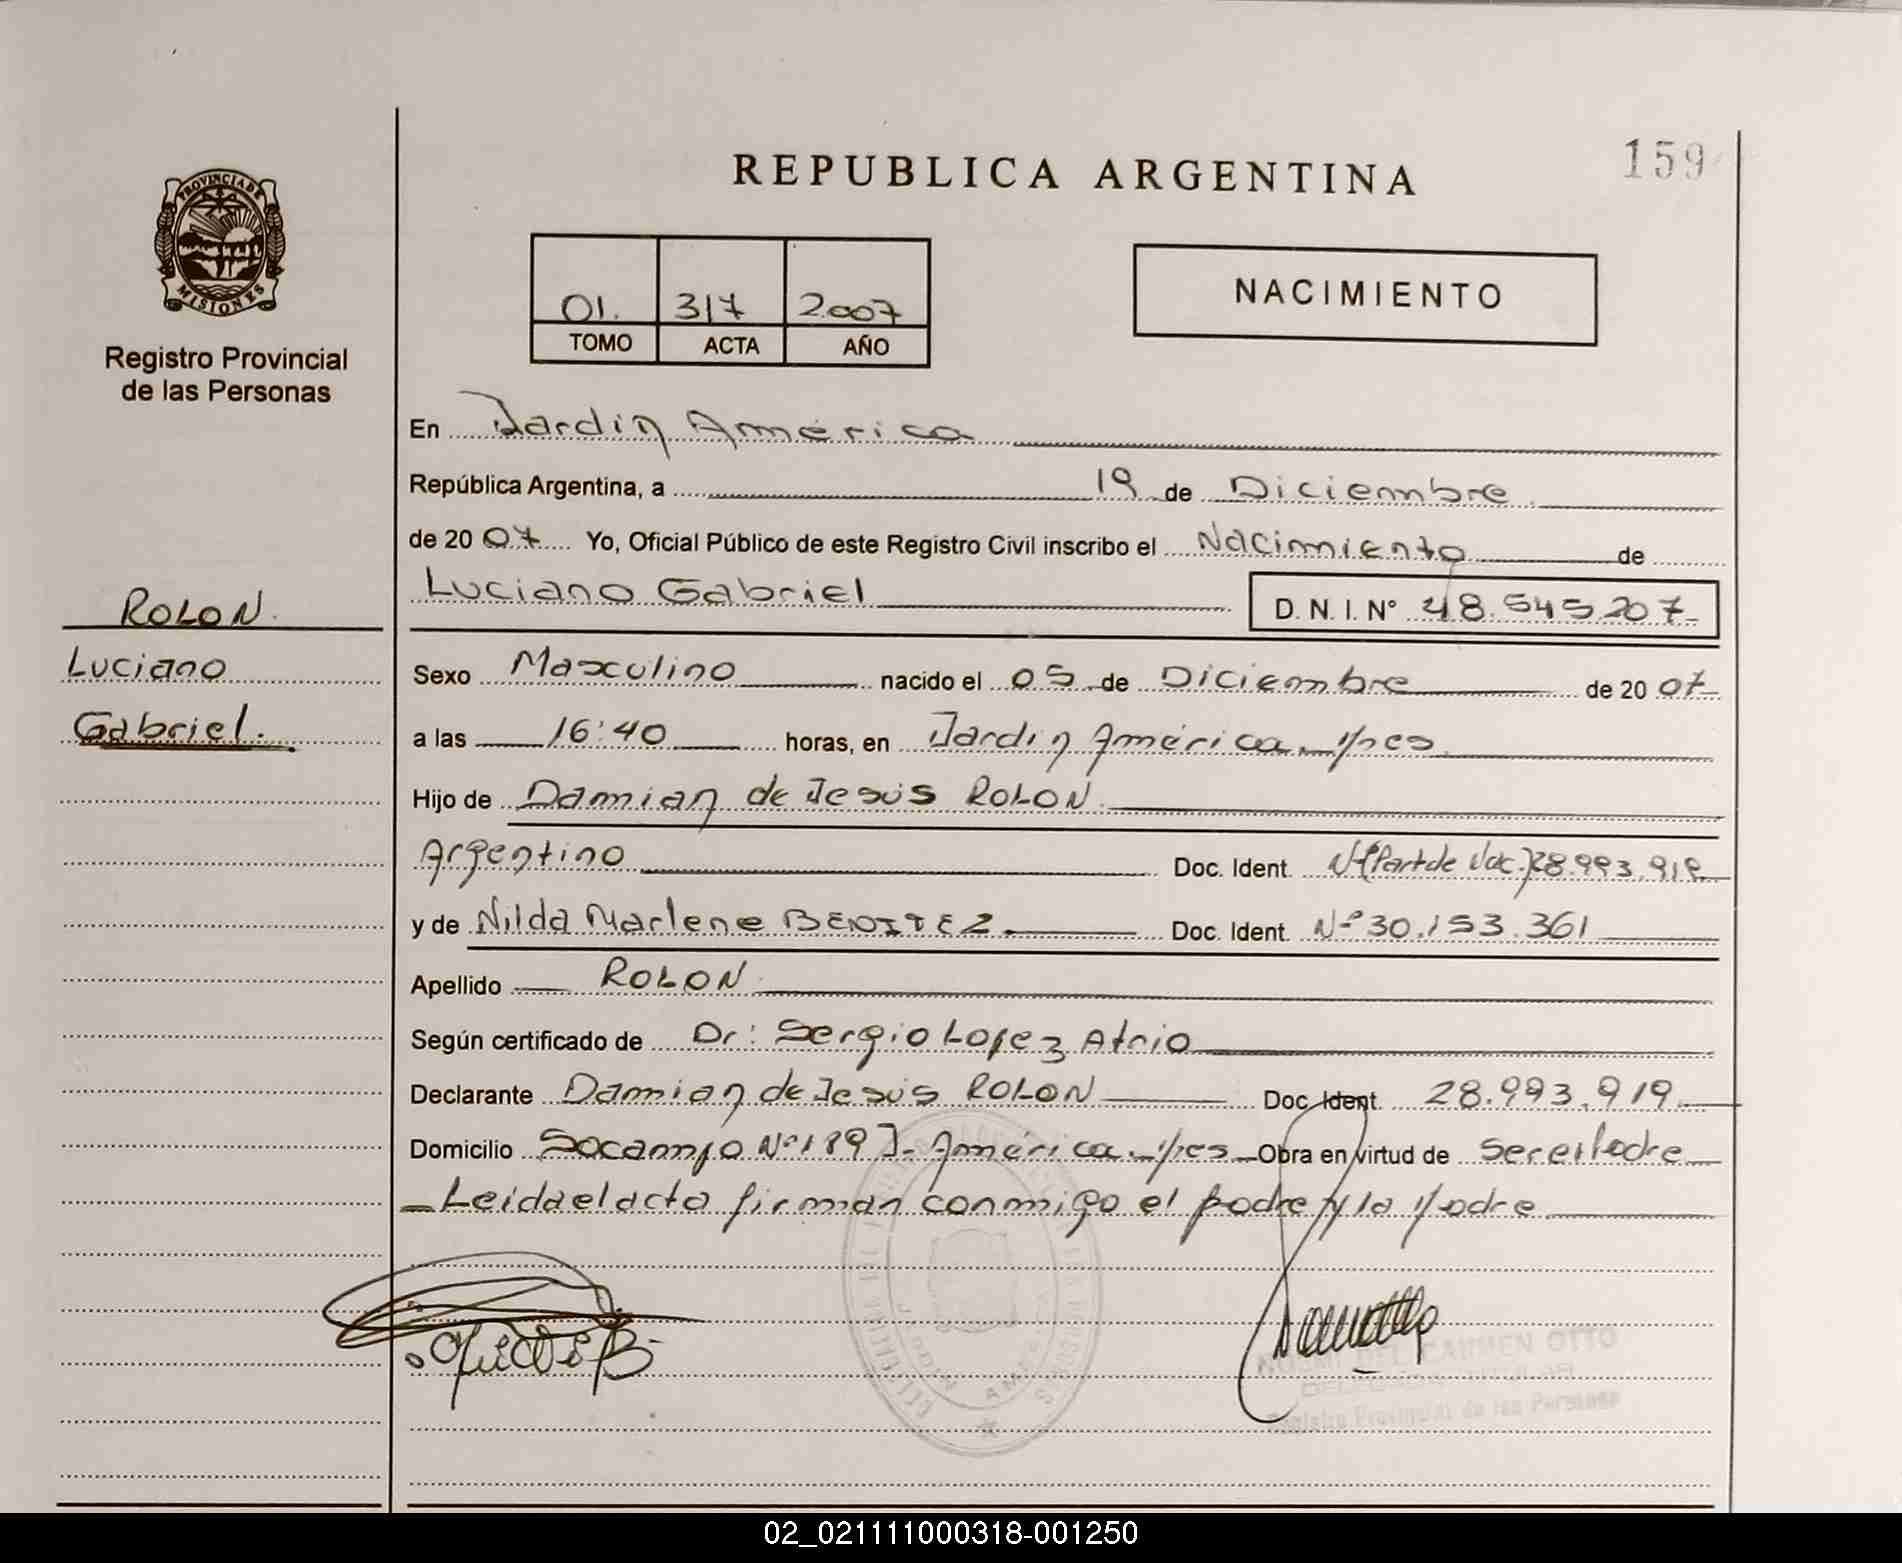 REPUBLICA ARGENTINA
159
PROVINCIA DE
MISIONES
Registro Provincial
de las Personas
01. 317 2007
TOMO ACTA AÑO
NACIMIENTO
En Jardin América
República Argentina, a 19 de Diciembre
de 2007 Yo, Oficial Público de este Registro Civil inscribo el Nacimiento de
Luciano Gabriel D. N. I. N° 48.545.207
ROLON
Luciano
Gabriel.
Sexo Masculino nacido el 05 de Diciembre de 2007
a las 16:40 horas, en Jardin América
Hijo de Damian de Jesús ROLON
Argentino Doc. Ident. 28.993.919
y de Nilda Marlene BENITEZ Doc. Ident. N° 30.153.361
Apellido ROLON
Según certificado de Dr: Sergio Lopez Atrio
Declarante Damian de Jesús ROLON Doc. Ident. 28.993.919
Domicilio Socampo N° 189 J. América Obra en virtud de ser el Padre
Leida el acta firman conmigo el padre y la Madre
NOEMI DEL CARMEN OTTO
DELEGADA TITULAR
Registro Provincial de las Personas
02_021111000318-001250